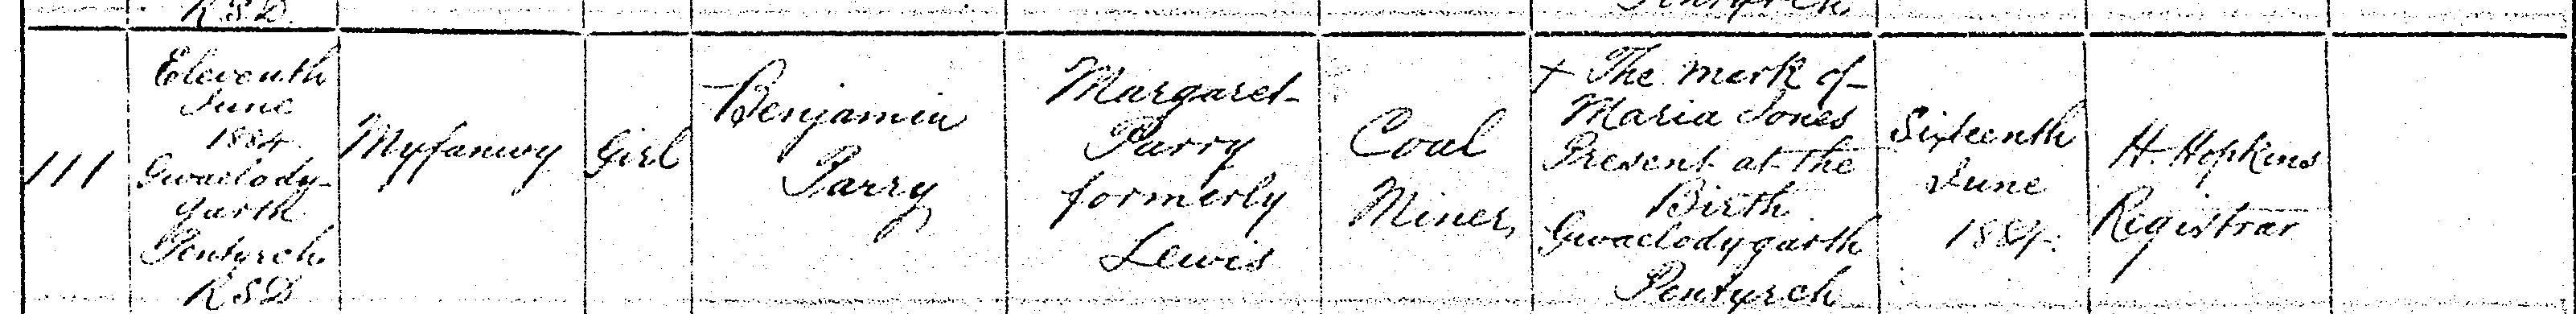 R.S.D.
Pentyrch
111
Eleventh
June
1884
Gwaelody-
garth
Pentyrch
R.S.D
Myfanwy
Girl
Benjamin
Parry
Margaret
Parry
formerly
Lewis
Coal
Miner
+ The mark of
Maria Jones
Present at the
Birth
Gwaelodygarth
Pentyrch
Sixteenth
June
1884.
H. Hopkins
Registrar